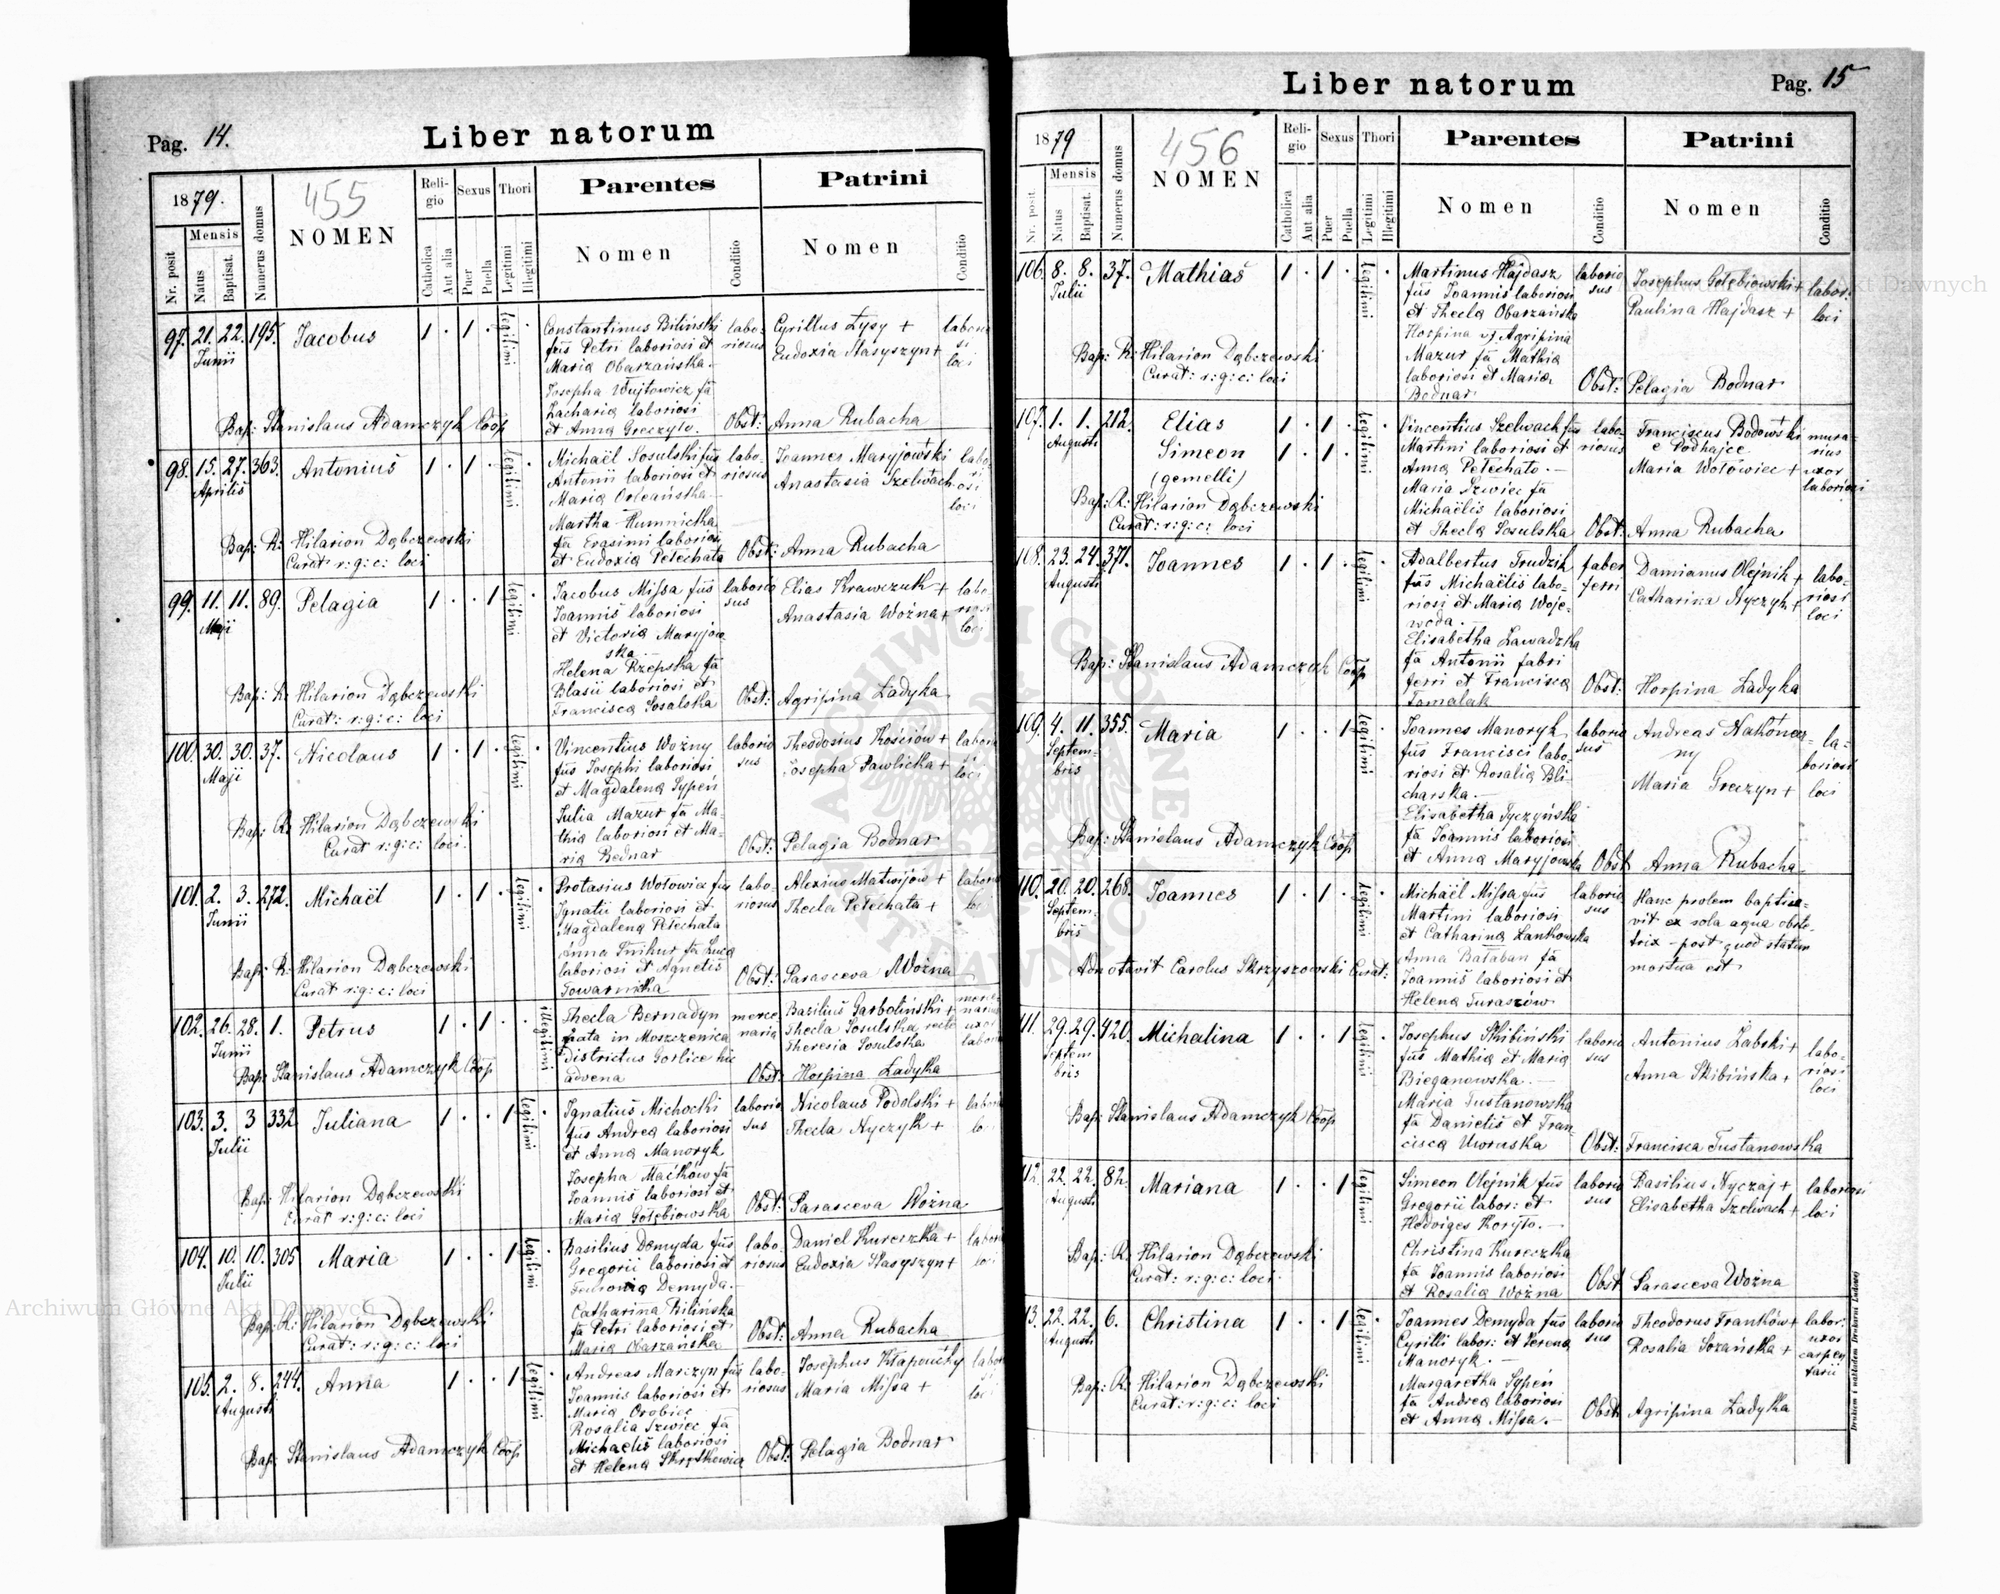 Pag. 14.
Liber natorum
1879.
Mensis
Nr. posit
Natus
Baptisat.
Numerus domus
455
NOMEN
Religio
Catholica
Aut alia
Sexus
Puer
Puella
Thori
Legitimi
Illegitimi
Parentes
Nomen
Conditio
Patrini
Nomen
Conditio
97. 21. 22. 195. Jacobus 1 . 1 . legitimi Constantinus Biliński labo- Cyrillus Łysy +
Junii fus Petri laboriosi et riosus Eudoxia Stasyszyn +
Maria Obarzańska.- loci
Josepha Wujtowicz fa
Zacharia laboriosi
Bap: Stanislaus Adamczyk Coop et Anna Greczyło. Obst: Anna Rubacha
98. 15. 27. 363. Antonius 1 . 1 . legitimi Michaël Sosulski fus labo- Joannes Maryjówski
Aprilis Antonii laboriosi et riosus Anastasia Szelwach
Maria Orleańska loci
Martha Humnicka
Bap: R: Hilarion Dąbczewski fa Erasimi laboriosi
Curat r: g: c: loci et Eudoxia Pełechata Obst: Anna Rubacha
99. 11. 11. 89. Pelagia 1 . . 1 legitimi Jacobus Missa fus laborio Elias Krawczuk +
Maji Joannis laboriosi sus Anastasia Woźna +
et Victoria Maryjow loci
ska.-
Helena Rzepska fa
Bap: R: Hilarion Dąbczewski Blasii laboriosi et
Curat: r: g: c: loci Francisca Sosulska Obst: Agripina Ładyka
100. 30. 30. 37. Nicolaus 1 . 1 . legitimi Vincentius Woźny laborio Theodosius Kościów +
Maji fus Josephi laboriosi sus Josepha Pawlicka +
et Magdalena Sypeń loci
Julia Mazur fa Ma-
Bap: R: Hilarion Dąbczewski thia laboriosi et Ma-
Curat r: g: c: loci. ria Bednar Obst: Pelagia Bodnar
101. 2. 3. 272. Michaël 1 . 1 . legitimi Protasius Wołowic fus labo- Alexius Matwijów +
Junii Ignatii laboriosi et riosus Thecla Pełechata +
Magdalena Pełechata
Anna Smihur fa Luca
Bap: R: Hilarion Dąbczewski laboriosi et Agnetis
Curat r: g: c: loci Towarnicka Obst: Parasceva Woźna
102. 26. 28. 1. Petrus 1 . 1 . illegitimi Thecla Bernadyn merce- Basilius Garboliński +
Junii nata in Moszczenica naria Thecla Sosulska recte
Bap: Stanislaus Adamczyk Coop districtus Gorlice hic Theresia Sosulska
advena Obst: Horpina Ładyka
103. 3. 3 332 Juliana 1 . . 1 legitimi Ignatius Michocki laborio Nicolaus Podolski +
Julii fus Andrea laboriosi sus Thecla Hyczyk +
et Anna Manoryk
Josepha Maćków fa
Bap: Hilarion Dąbczewski Joannis laboriosi et
Curat r: g: c: loci Maria Gołębiowska Obst: Parasceva Woźna
104. 10. 10. 305 Maria 1 . . 1 legitimi Basilius Demyda fus labo- Daniel Kureczka +
Julii Gregorii laboriosi et riosus Eudoxia Stasyszyn +
Demyda.-
Catharina Bilińska
Bap: R: Hilarion Dąbczewski fa Petri laboriosi et
Curat: r: g: c: loci Maria Obarzańska Obst: Anna Rubacha
105. 2. 8. 244. Anna 1 . . 1 legitimi Andreas Marczyn fus labo- Josephus Kłapouchy
Augusti Joannis laboriosi et riosus Maria Missa +
Maria Orobiec
Rosalia Szwiec fa
Bap: Stanislaus Adamczyk Coop Michaelis laboriosi
et Helena Obst: Pelagia Bodnar
Liber natorum
Pag. 15
1879
Mensis
Nr. posit
Natus
Baptisat.
Numerus domus
456
NOMEN
Religio
Catholica
Aut alia
Sexus
Puer
Puella
Thori
Legitimi
Illegitimi
Parentes
Nomen
Conditio
Patrini
Nomen
Conditio
106. 8. 8. 37. Mathias 1 . 1 . legitimi Martinus Hajdasz laborio Josephus Gołębiowski + labor.
Julii fus Joannis laboriosi sus Paulina Hajdasz + loci
et Thecla Obarzańska
Horpina v/ Agripina
Bap: R: Hilarion Dąbczewski Mazur fa Mathia
Curat: r: g: c: loci laboriosi et Maria
Bodnar Obst: Pelagia Bodnar
107. 1. 1. 212. Elias 1 . 1 . legitimi Vincentius Szelwach fus labo- Franciscus Bodowski mura-
Augusti Simeon 1 . 1 . Martini laboriosi et riosus e Podhajce rius
(gemelli) Anna Pełechato.- Maria Wołowiec + uxor
Maria Szwiec fa laboriosi
Bap: R: Hilarion Dąbczewski Michaëlis laboriosi
Curat: r: g: c: loci et Thecla Sosulska Obst: Anna Rubacha
108. 23. 24. 371. Joannes 1 . 1 . legitimi Adalbertus Trudzik faber Damianus Olejnik + labo-
Augusti fus Michaëlis labo- ferri Catharina Hyczyk + riosi
riosi et Maria Woje- loci
woda.-
Elisabetha Zawadzka
Bap: Stanislaus Adamczyk Coop fa Antonii fabri
ferri et Francisca Obst: Horpina Ładyka
Tomalak
109. 4. 11. 355. Maria 1 . . 1 legitimi Joannes Manoryk laborio Andreas Nakonecz- la-
Septem- fus Francisci labo- sus ny boriosi
bris riosi et Rosalia Bli- Maria Greczyn + loci
charska.-
Elisabetha Tyczyńska
Bap: Stanislaus Adamczyk Coop fa Joannis laboriosi
et Anna Maryjowska Obst Anna Rubacha
110. 20. 20. 268. Joannes 1 . 1 . legitimi Michaël Missa fus laborio Hanc prolem baptisa-
Septem- Martini laboriosi sus vit ex sola aqua obste-
bris et Catharina Zankowska trix - post quod statim
Anna Bałaban fa mortua est
Adnotavit Carolus Skrzyszowski Curat: Joannis laboriosi et
Helena Turaszów
111. 29. 29. 420. Michalina 1 . . 1 legitimi Josephus Skibiński laborio Antonius Żabski + labo-
Septem fus Mathia et Maria sus Anna Skibińska + riosi
bris Bieganowska.- loci
Maria Tustanowska
Bap: Stanislaus Adamczyk Coop fa Danielis et Fran-
cisca Obst: Francisca Tustanowska
112. 22. 22. 82. Mariana 1 . . 1 legitimi Simeon Olejnik fus laborio Basilius Hyczaj + laboriosi
Augusti Gregorii labor: et sus Elisabetha Szelwach + loci
Hedviges Koryło.-
Bap: R: Hilarion Dąbczewski Christina Kureczka
Curat: r: g: c: loci. fa Joannis laboriosi
et Rosalia Woźna Obst Parasceva Woźna
13. 22. 22. 6. Christina 1 . . 1 legitimi Joannes Demyda fus laborio Theodorus Franków + labor:
Augusti Cyrilli labor: et Verena sus Rosalia Sozańska + uxor
Manoryk.- carpen
Bap: R: Hilarion Dąbczewski Margaretha Sypeń tarii
Curat: r: g: c: loci fa Andrea laboriosi
et Anna Missa.- Obst Agripina Ładyka
Drukiem i nakładem Drukarni Ludowej
Archiwum Główne Akt Dawnych
ARCHIWUM GŁÓWNE AKT DAWNYCH